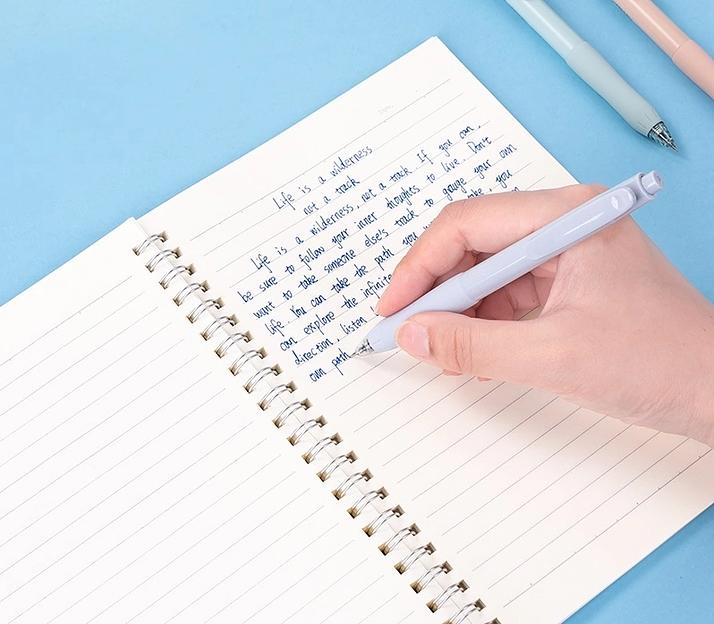 Life is a wilderness
not a track
Life is a wilderness, not a track. If you can,
be sure to follow your inner thoughts to live. Don't
want to take someone else's track to gauge your own
life. You can take the path you you
can explore the infinite
direction, listen
own path